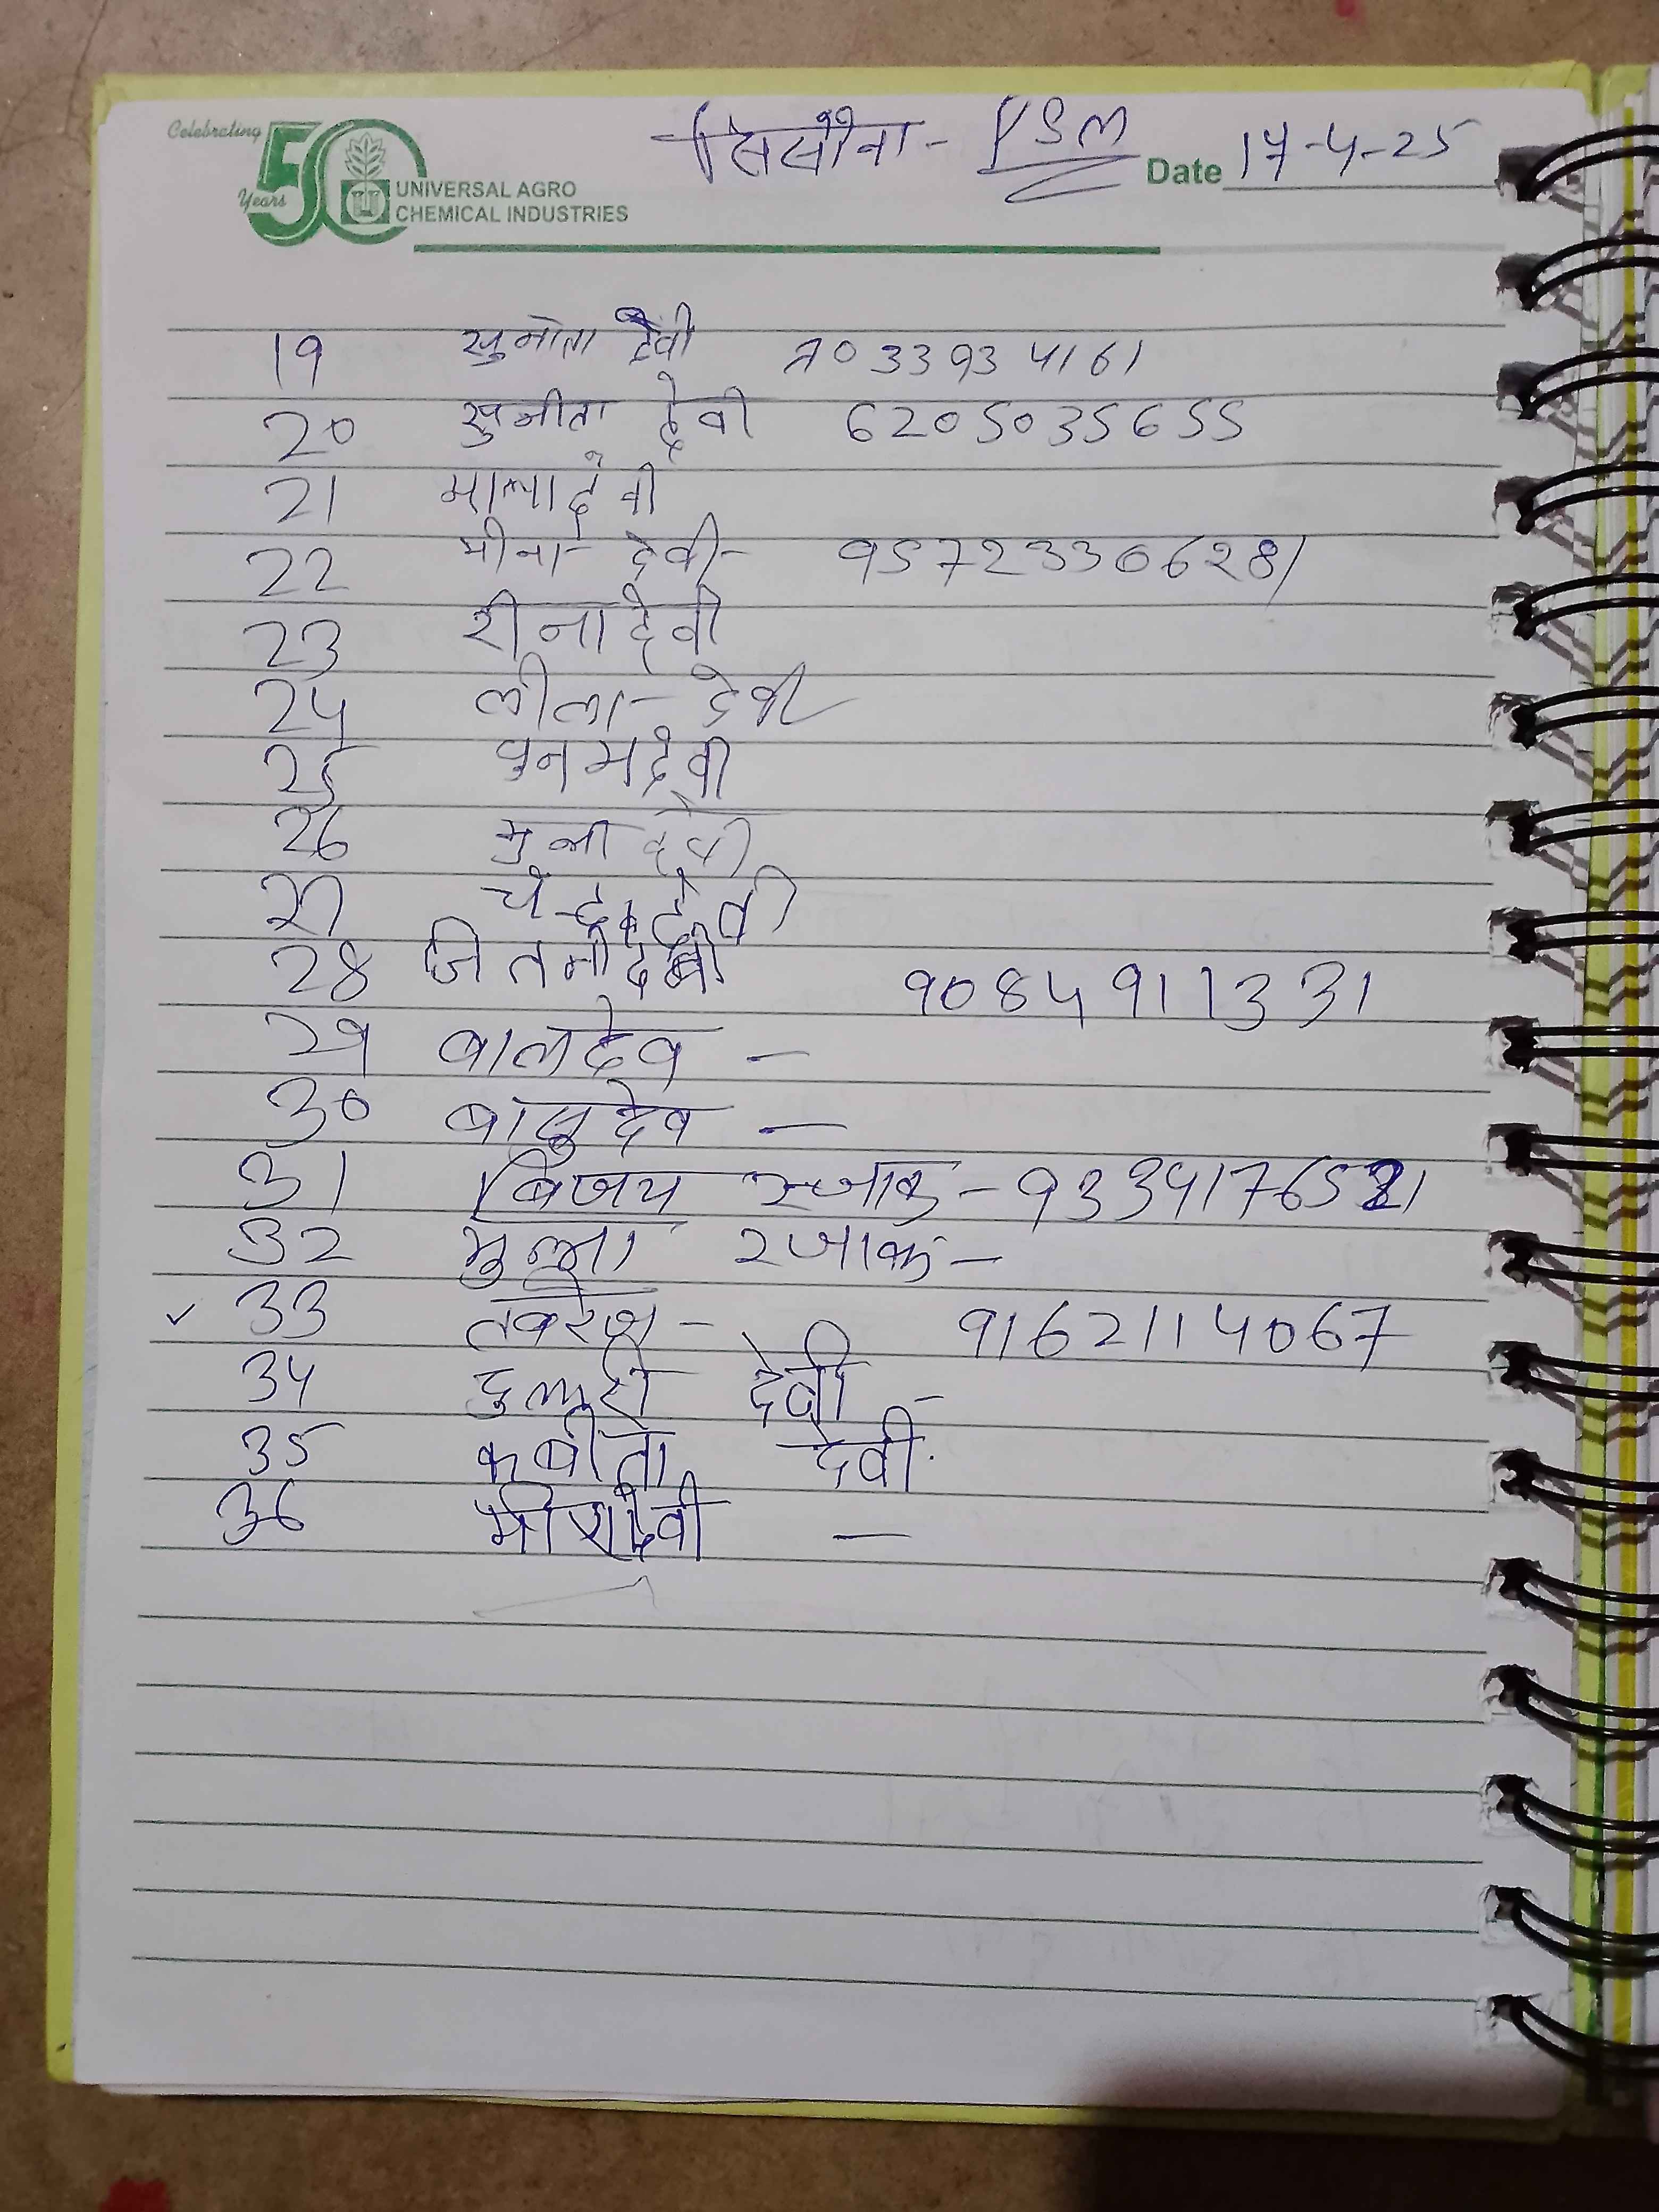 Celebrating
50
Years
UNIVERSAL AGRO
CHEMICAL INDUSTRIES
सिसौना - PSM
Date 17-4-25
19 सुनीता देवी 7033934161
20 सुनीता देवी 6205035655
21 माला देवी
22 मीना - देवी - 9572330628/
23 रीना देवी
24 लीला - देवी
25 पुनम देवी
26 मुन्नी देवी
27 देवी
28 9084911331
29 बालदेव -
30 बासुदेव -
31 बिजय रजाक - 9334176521
32 मुन्ना रजाक -
✓ 33 तबरेज - 9162114067
34 दुलारी देवी -
35 कबीता देवी.
36 मीरा देवी -